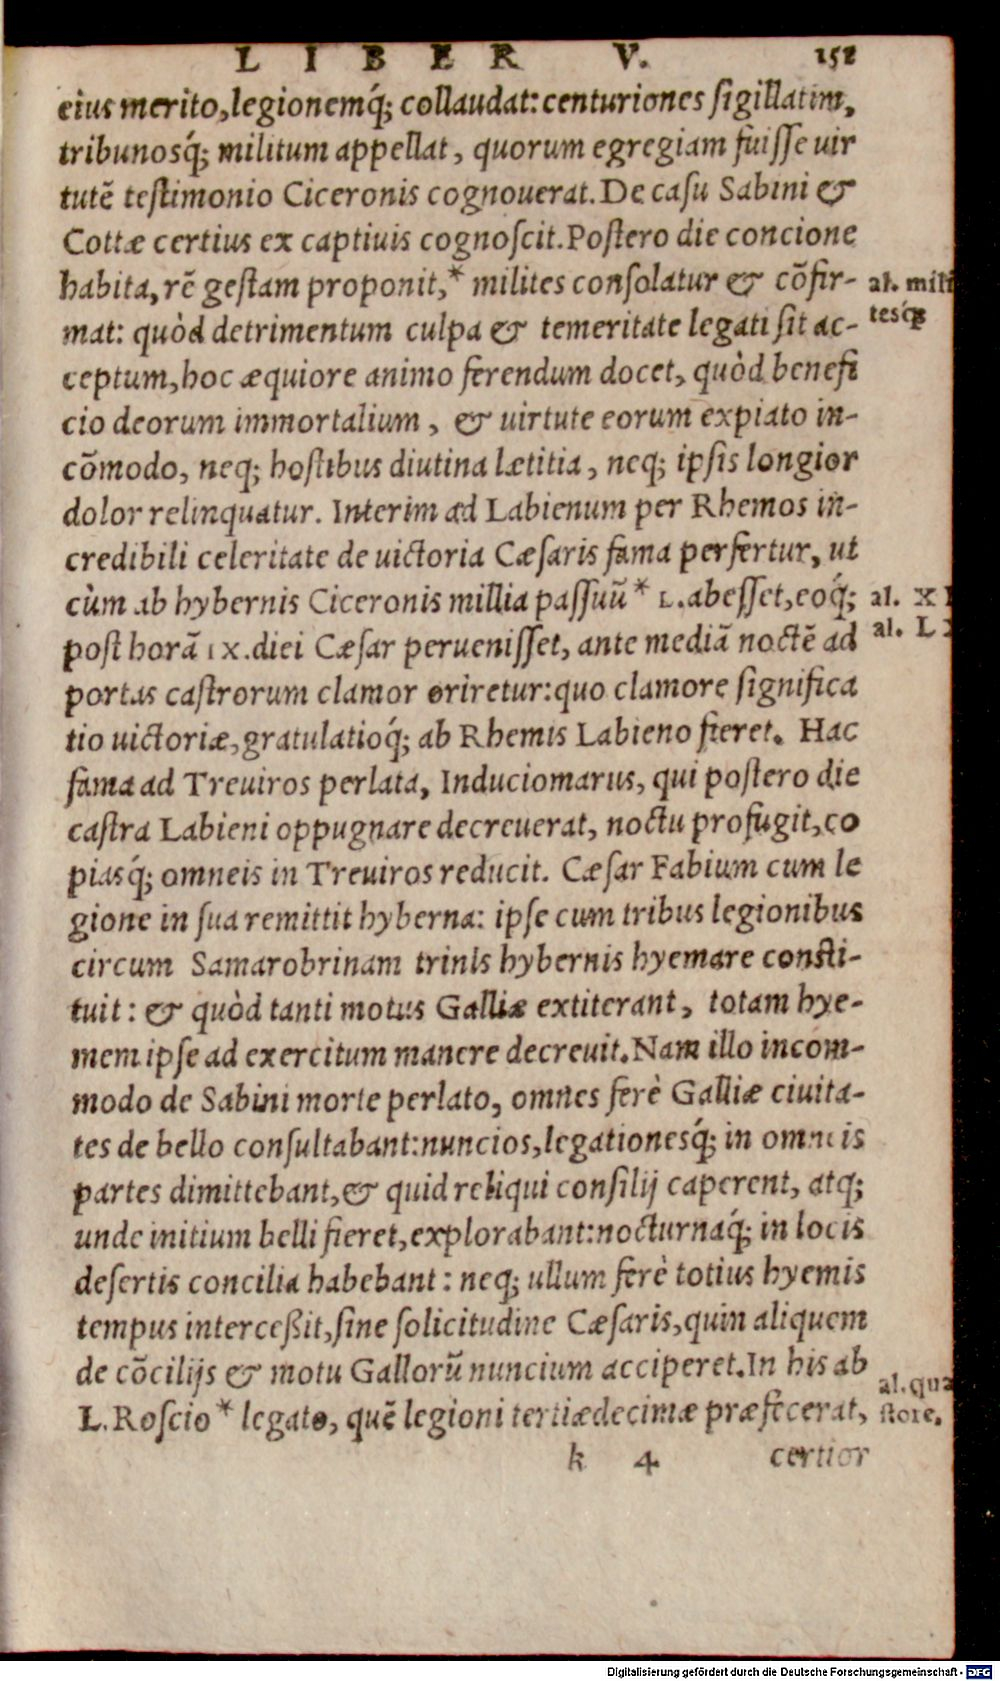 LIBER V. 152
eius merito, legionemq́; collaudat: centuriones sigillatim,
tribunosq́; militum appellat, quorum egregiam fuisse uir
tutē testimonio Ciceronis cognouerat. De casu Sabini &
Cottæ certius ex captiuis cognoscit. Postero die concione
habita, rē gestam proponit,* milites consolatur & cōfir-
al. mili
mat: quòd detrimentum culpa & temeritate legati sit ac-
tesq́;
ceptum, hoc æquiore animo ferendum docet, quòd benefi
cio deorum immortalium, & uirtute eorum expiato in-
cōmodo, neq; hostibus diutina lætitia, neq; ipsis longior
dolor relinquatur. Interim ad Labienum per Rhemos in-
credibili celeritate de uictoria Cæsaris fama perfertur, ut
cùm ab hybernis Ciceronis millia passuū * L. abesset, eoq́;
al. X
post horā IX. diei Cæsar peruenisset, ante mediā noctē ad
al. L
portas castrorum clamor oriretur: quo clamore significa
tio uictoriæ, gratulatioq́; ab Rhemis Labieno fieret. Hac
fama ad Treuiros perlata, Induciomarus, qui postero die
castra Labieni oppugnare decreuerat, noctu profugit, co
piasq́; omneis in Treuiros reducit. Cæsar Fabium cum le
gione in sua remittit hyberna: ipse cum tribus legionibus
circum Samarobrinam trinis hybernis hyemare consti-
tuit: & quòd tanti motus Galliæ extiterant, totam hye-
mem ipse ad exercitum manere decreuit. Nam illo incom-
modo de Sabini morte perlato, omnes ferè Galliæ ciuita-
tes de bello consultabant: nuncios, legationesq́; in omneis
partes dimittebant, & quid reliqui consilij caperent, atq;
unde initium belli fieret, explorabant: nocturnaq́; in locis
desertis concilia habebant: neq; ullum ferè totius hyemis
tempus interceßit, sine solicitudine Cæsaris, quin aliquem
de cōcilijs & motu Gallorū nuncium acciperet. In his ab
al. quæ
L. Roscio * legato, quē legioni tertiædecimæ præfecerat,
store.
k 4 certior
Digitalisierung gefördert durch die Deutsche Forschungsgemeinschaft - DFG